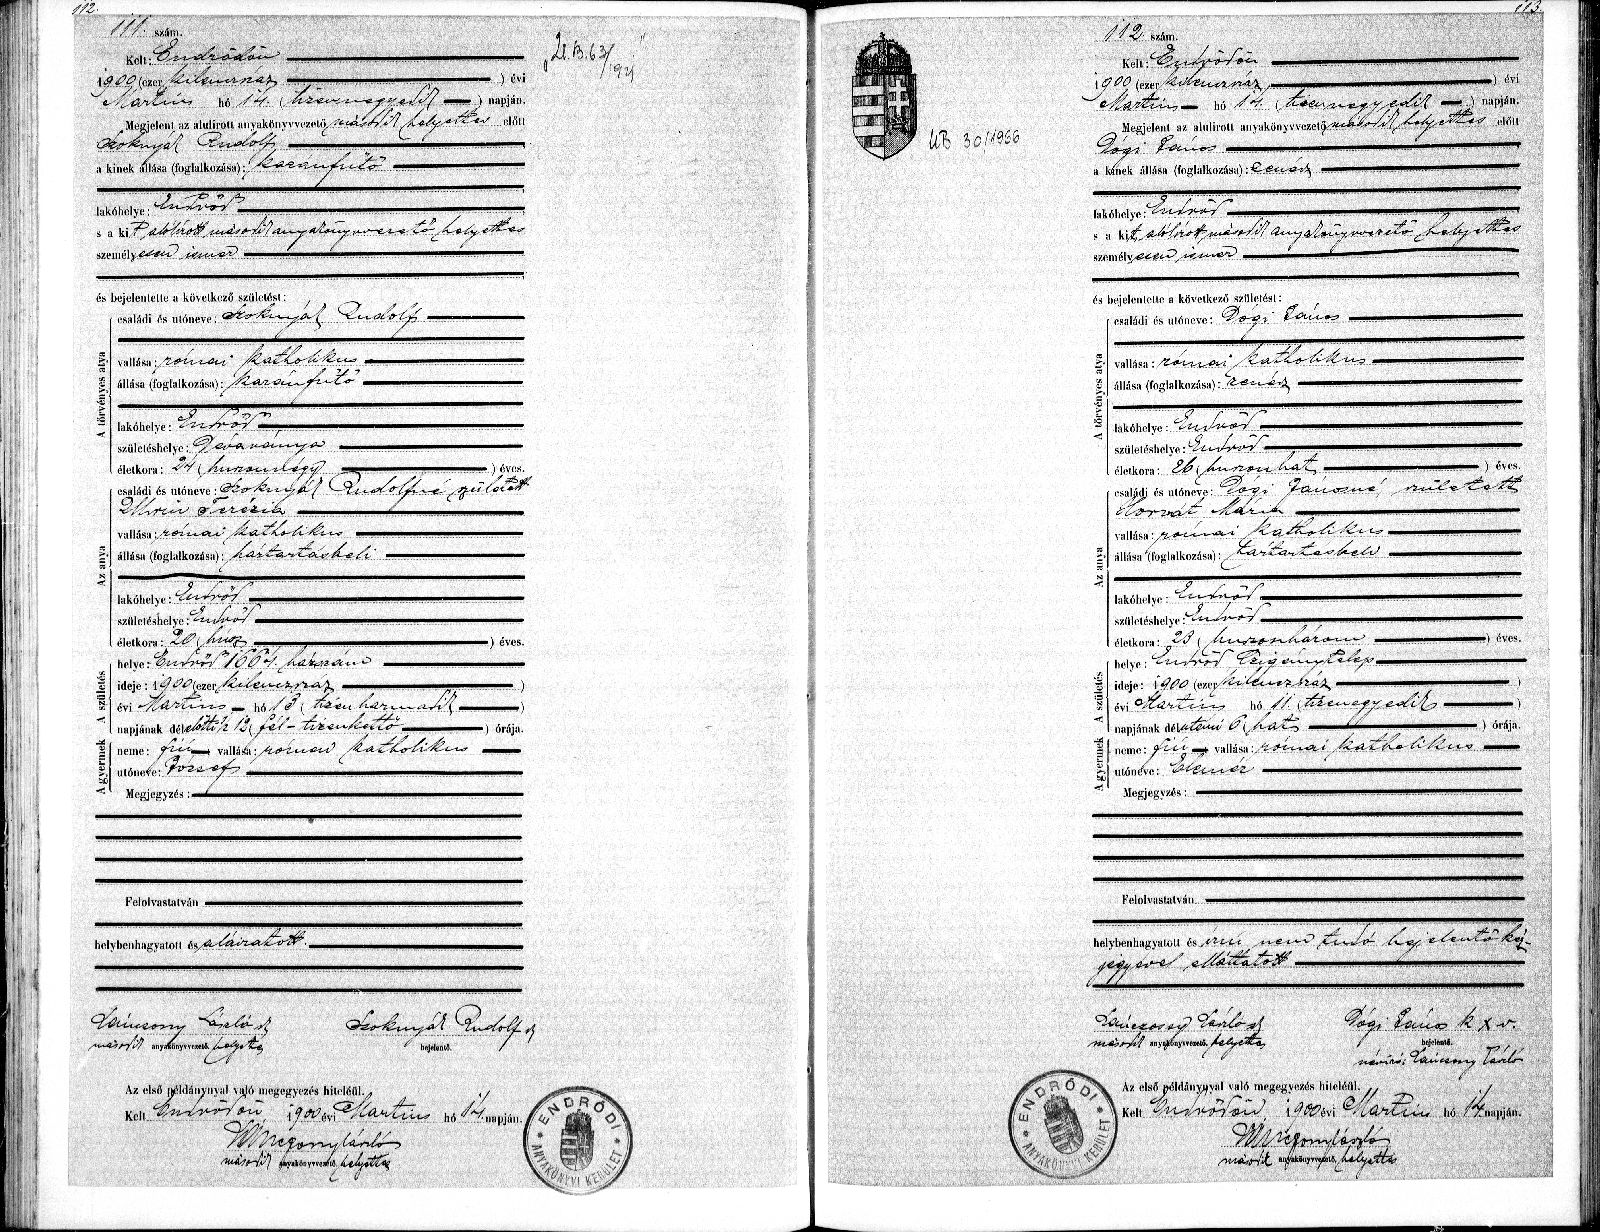 112.
111. szám.
Kelt: Endrődön
1900 (ezer kilenczszáz) évi
Martius hó 14. (tizennegyedik) napján.
Megjelent az alulirott anyakönyvvezető, második helyettes előtt
Szoknyát Rudolf
a kinek állása (foglalkozása): kazánfűtő
lakóhelye: Endrőd
s a kit alólírott második anyakönyvvezető helyettes
személyesen ismer
és bejelentette a következő születést:
A törvényes atya
családi és utóneve: Szoknyát Rudolf
vallása: római katholikus
állása (foglalkozása): kazánfűtő
lakóhelye: Endrőd
születéshelye: Dévaványa
életkora: 24 (huszonnégy) éves.
Az anya
családi és utóneve: Szoknyát Rudolfné született
Terézia
vallása: római katholikus
állása (foglalkozása): háztartásbeli
lakóhelye: Endrőd
születéshelye: Endrőd
életkora: 20 (húsz) éves.
A születés
helye: Endrőd 1664. házszám
ideje: 1900 (ezer kilenczszáz)
évi Martius hó 13 (tizenharmadik)
napjának délelőtti ½ 12 (fél-tizenkettő) órája.
A gyermek
neme: fiú vallása: római katholikus
utóneve: József
Megjegyzés:
Felolvastatván
helybenhagyatott és aláíratott.
László
második anyakönyvvezető helyettes
Szoknyát Rudolf
bejelentő.
Az első példánynyal való megegyezés hiteléül.
Kelt Endrődön 1900 évi Martius hó 14 napján.
második anyakönyvvezető helyettes
ENDRŐDI
ANYAKÖNYVI KERÜLET
113.
112. szám.
UB 30/1966
Kelt: Endrődön
1900 (ezer kilenczszáz) évi
Martius hó 14. (tizennegyedik) napján.
Megjelent az alulirott anyakönyvvezető, második helyettes előtt
Dógi János
a kinek állása (foglalkozása): zenész
lakóhelye: Endrőd
s a kit alólírott második anyakönyvvezető helyettes
személyesen ismer
és bejelentette a következő születést:
A törvényes atya
családi és utóneve: Dógi János
vallása: római katholikus
állása (foglalkozása): zenész
lakóhelye: Endrőd
születéshelye: Endrőd
életkora: 26 (huszonhat) éves.
Az anya
családi és utóneve: Dógi Jánosné, született
Horvát Mária
vallása: római katholikus
állása (foglalkozása): háztartásbeli
lakóhelye: Endrőd
születéshelye: Endrőd
életkora: 23 (huszonhárom) éves.
A születés
helye: Endrőd Czigánytelep
ideje: 1900 (ezer kilenczszáz)
évi Martius hó 11. (tizenegyedik)
napjának délutáni 6 (hat) órája.
A gyermek
neme: fiú vallása: római katholikus
utóneve: Elemér
Megjegyzés:
Felolvastatván
helybenhagyatott és írni nem tudó bejelentő kéz-
jegyével elláttatott
László
második anyakönyvvezető helyettes
Dógi János k x v.
bejelentő.
névíró: László
Az első példánynyal való megegyezés hiteléül.
Kelt Endrődön, 1900 évi Martius hó 14 napján.
második anyakönyvvezető helyettes
ENDRŐDI
ANYAKÖNYVI KERÜLET